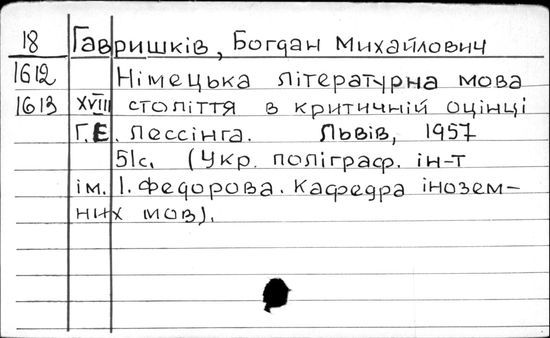 18 Гавришків, Богдан Михайлович
1612 Німецька літературна мова
1613 XVIII століття в критичній оцінці
Г.Е. Лессінга. Львів, 1957
51с. (Укр. поліграф. ін-т
ім. І. Федорова. Кафедра інозем-
них мов).